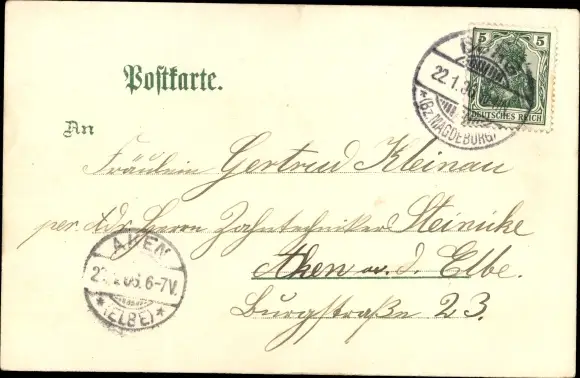 5 5
DEUTSCHES REICH
22.1.06
*(BZ. MAGDEBURG)
Postkarte.
An
Fräulein Gertrud Kleinau
per. Adr. Herrn Zahntechniker Steinicke
Aken a. d. Elbe.
Burgstraße 23.
AKEN
06. 6-7V.
*(ELBE)*